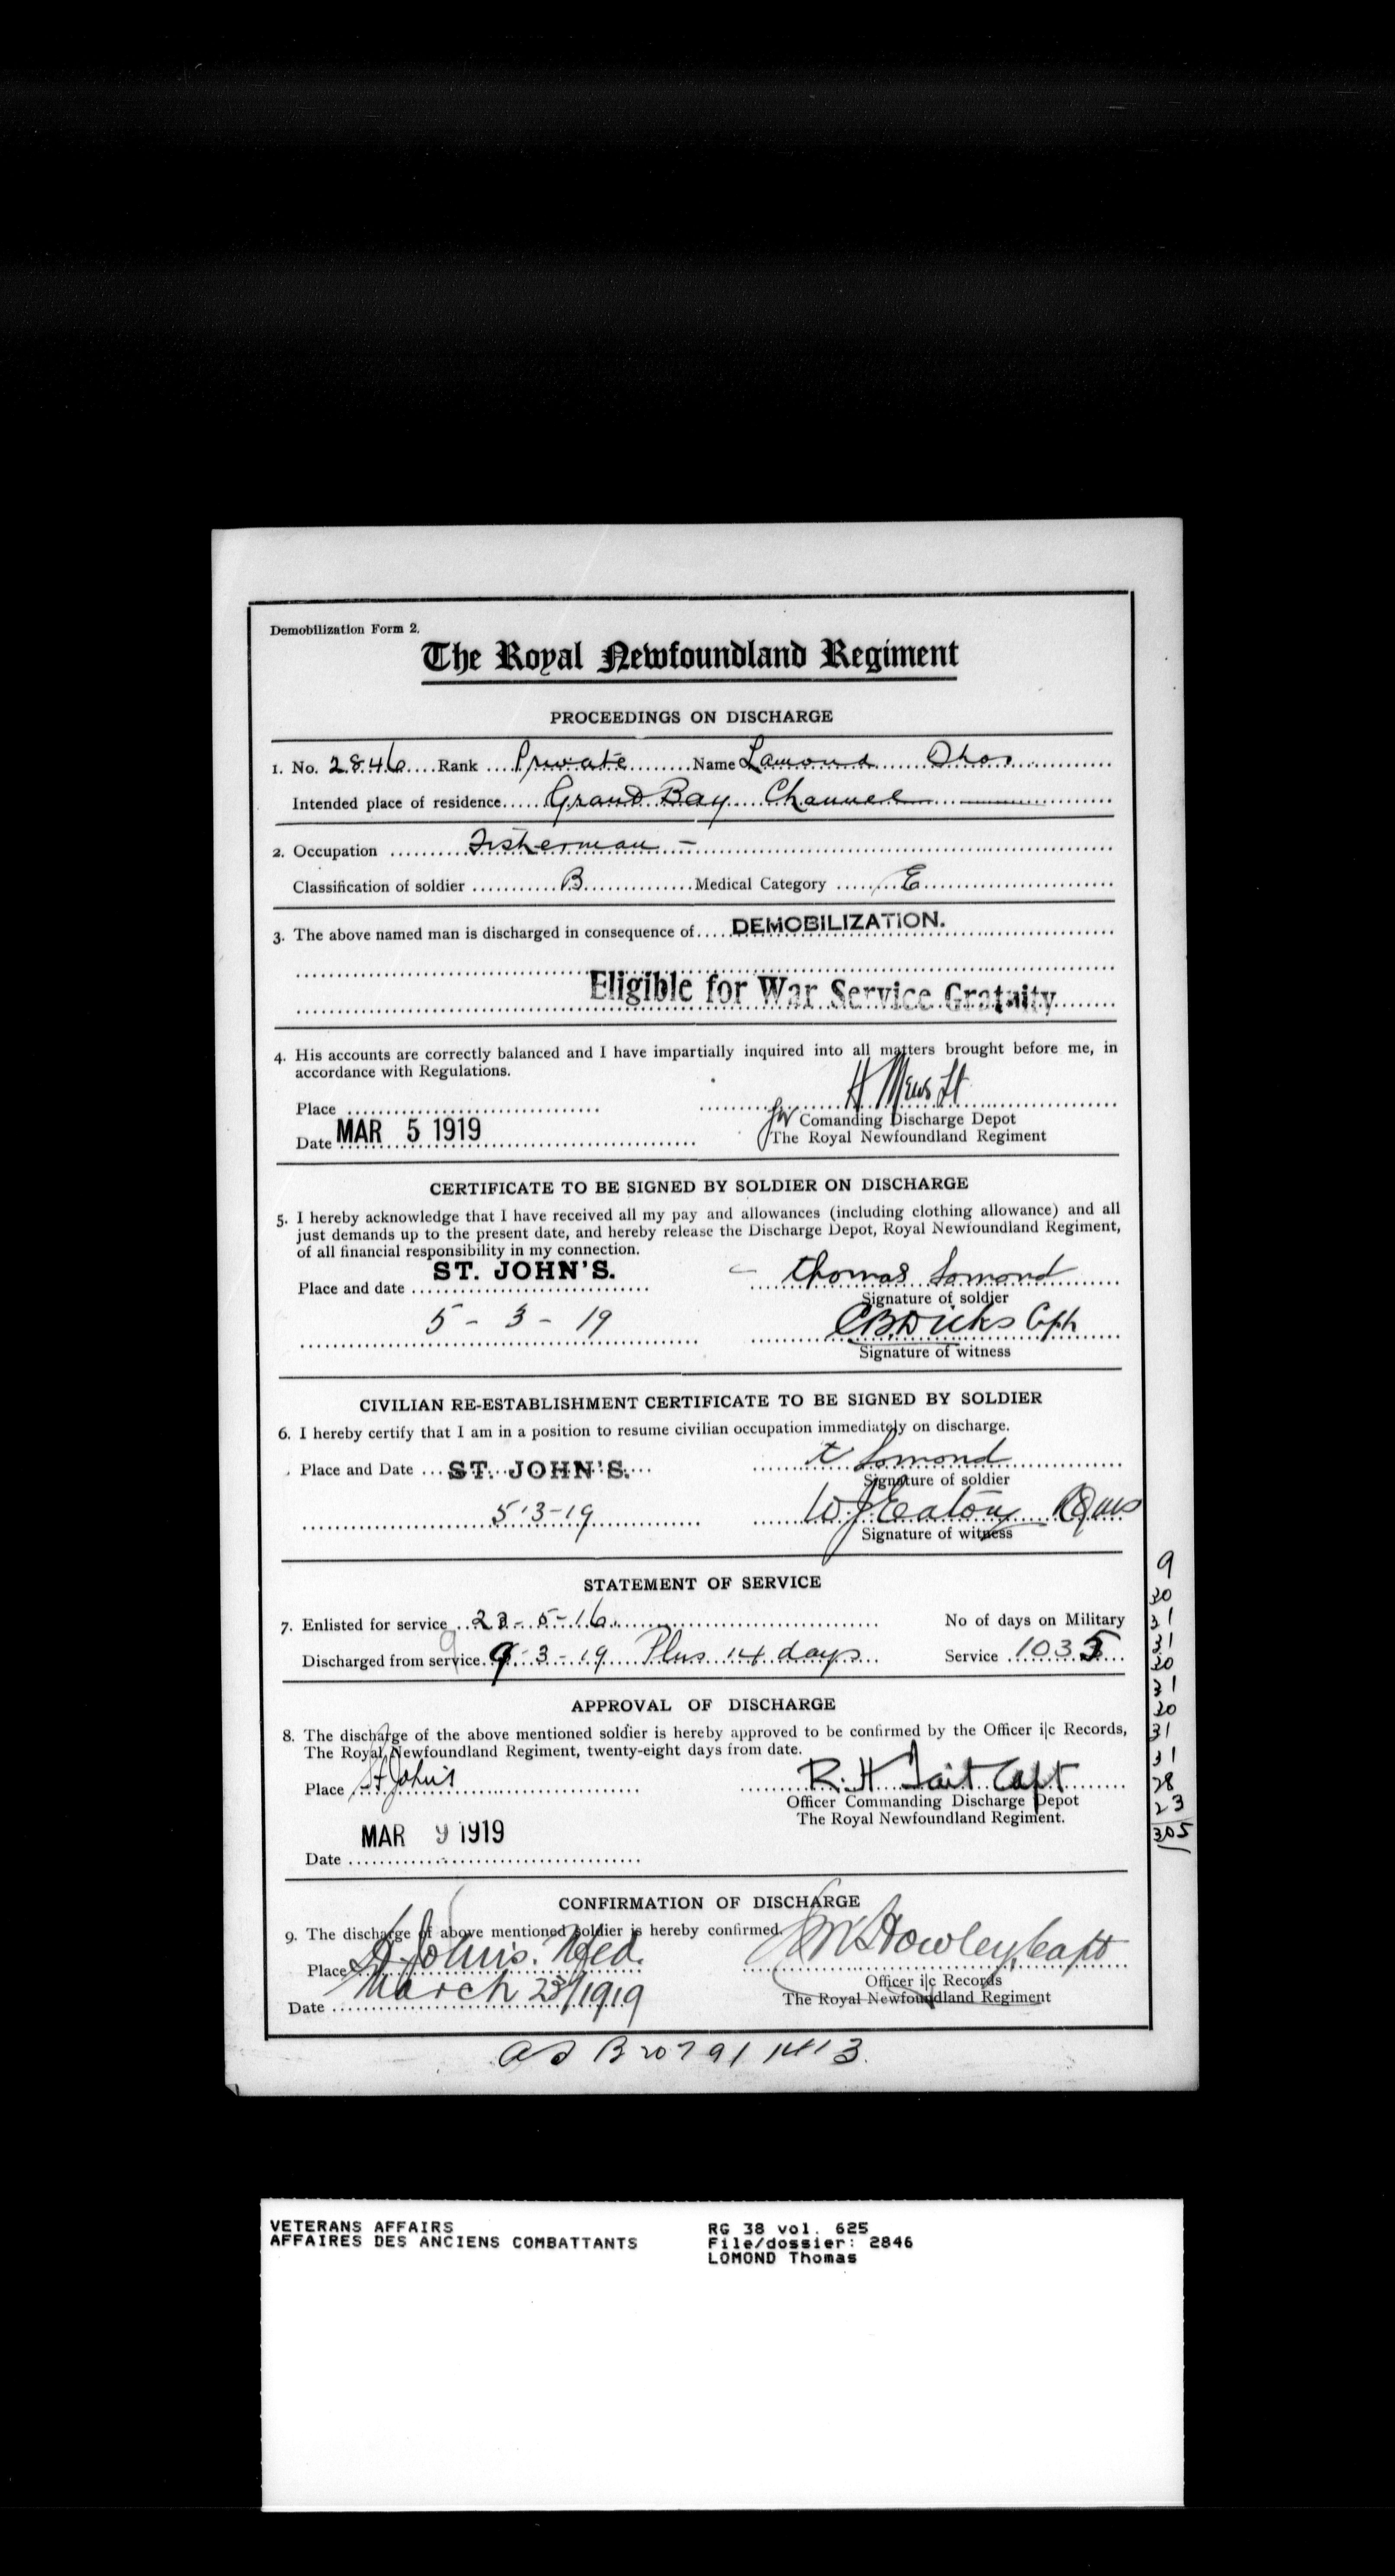 Demobilization Form 2.
The Royal Newfoundland Regiment
PROCEEDINGS ON DISCHARGE
1. No. 2846 Rank Private Name Lamond Thos
Intended place of residence Grand Bay Channel
2. Occupation Fisherman -
Classification of soldier B Medical Category E
3. The above named man is discharged in consequence of DEMOBILIZATION.
Eligible for War Service Gratuity
4. His accounts are correctly balanced and I have impartially inquired into all matters brought before me, in
accordance with Regulations.
H Mews Lt
Place
for Comanding Discharge Depot
Date MAR 5 1919
The Royal Newfoundland Regiment
CERTIFICATE TO BE SIGNED BY SOLDIER ON DISCHARGE
5. I hereby acknowledge that I have received all my pay and allowances (including clothing allowance) and all
just demands up to the present date, and hereby release the Discharge Depot, Royal Newfoundland Regiment,
of all financial responsibility in my connection.
Place and date ST. JOHN'S. Thomas Lomond
Signature of soldier
5 - 3 - 19 C B Dicks Capt
Signature of witness
CIVILIAN RE-ESTABLISHMENT CERTIFICATE TO BE SIGNED BY SOLDIER
6. I hereby certify that I am in a position to resume civilian occupation immediately on discharge.
Place and Date ST. JOHN'S. t Lomond
Signature of soldier
5-3-19 W J Eaton RQMS
Signature of witness
STATEMENT OF SERVICE
7. Enlisted for service 22-5-16 No of days on Military
Discharged from service 9-3-19 Plus 14 days Service 1035
APPROVAL OF DISCHARGE
8. The discharge of the above mentioned soldier is hereby approved to be confirmed by the Officer i|c Records,
The Royal Newfoundland Regiment, twenty-eight days from date.
Place St John's R. H Tait Capt
Officer Commanding Discharge Depot
The Royal Newfoundland Regiment.
MAR 9 1919
Date
9
30
31
31
30
31
30
31
31
28
23
305
CONFIRMATION OF DISCHARGE
9. The discharge of above mentioned soldier is hereby confirmed.
Place St John's. Nfld. Howley, Capt
Officer i|c Records
Date March 23/1919
The Royal Newfoundland Regiment
B 20791 1413
VETERANS AFFAIRS
AFFAIRES DES ANCIENS COMBATTANTS
RG 38 vol. 625
File/dossier: 2846
LOMOND Thomas